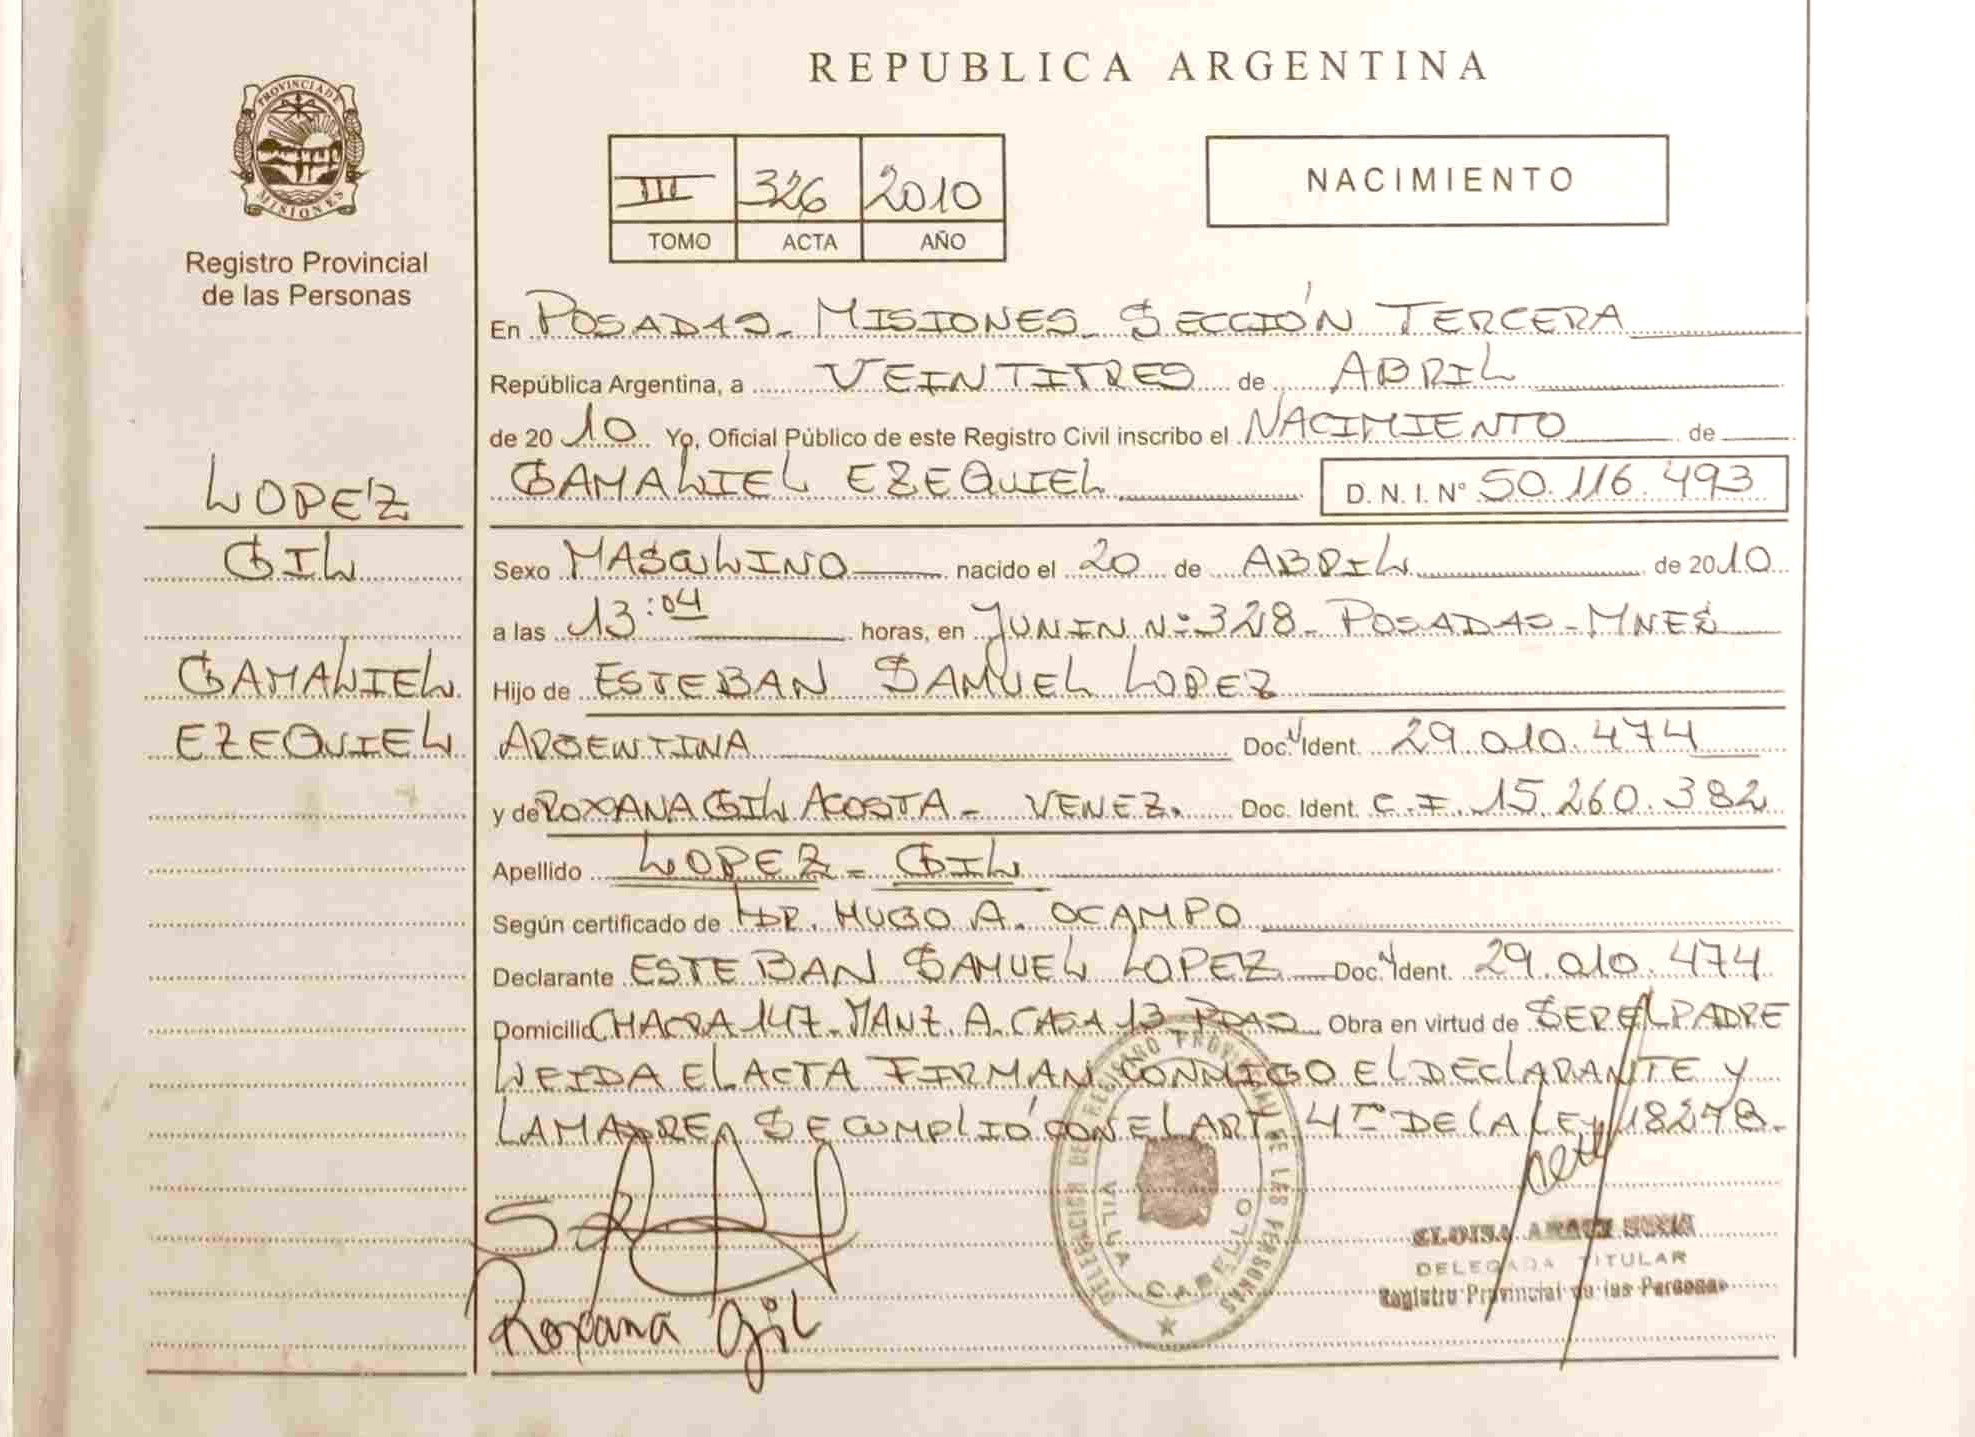 REPUBLICA ARGENTINA
PROVINCIA DE MISIONES
Registro Provincial
de las Personas
III 326 2010
TOMO ACTA AÑO
NACIMIENTO
En POSADAS - MISIONES - SECCIÓN TERCERA
República Argentina, a VEINTITRES de ABRIL
de 2010 Yo, Oficial Público de este Registro Civil inscribo el NACIMIENTO de
GAMALIEL EZEQUIEL D.N.I. Nº 50.116.493
LOPEZ
GIL
GAMALIEL
EZEQUIEL
Sexo MASCULINO nacido el 20 de ABRIL de 2010
a las 13:04 horas, en JUNIN Nº 328 - POSADAS - MNES
Hijo de ESTEBAN SAMUEL LOPEZ
ARGENTINA Doc. Ident. 29.010.474
y de ROXANA GIL ACOSTA - VENEZ. Doc. Ident. C.I. 15.260.382
Apellido LOPEZ - GIL
Según certificado de DR. HUGO A. OCAMPO
Declarante ESTEBAN SAMUEL LOPEZ Doc. Ident. 29.010.474
Domicilio CHACRA 147 - MANZ. A. CASA 13 - PDAS Obra en virtud de SER EL PADRE
LEIDA EL ACTA FIRMAN CONMIGO EL DECLARANTE Y
LA MADRE, SE CUMPLIÓ CON EL ART. 4to DE LA LEY 18248.
Roxana Gil
DELEGACION DE REGISTRO PROVINCIAL DE LAS PERSONAS
VILLA CABELLO
ELOISA
DELEGADA TITULAR
Registro Provincial de las Personas